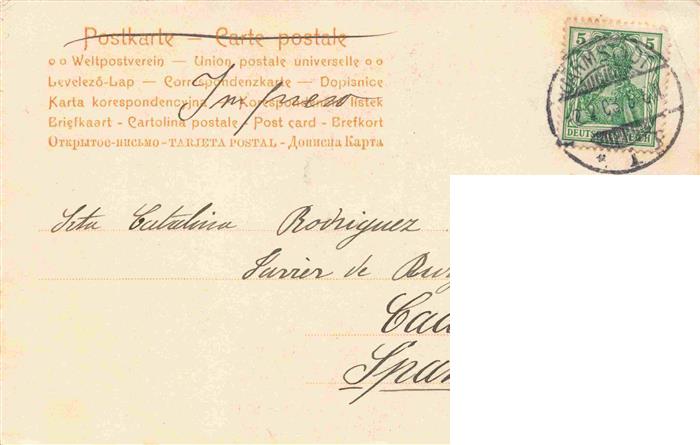 Postkarte — Carte postale
Weltpostverein — Union postale universelle
Levelező-Lap — Correspondenzkarte — Dopisnice
Karta korespondencyjna — Korespondenční lístek
Briefkaart - Cartolina postale - Post card - Brefkort
Открытое-письмо - TARJETA POSTAL - Дописна Карта
Impreso
5 5
Srta Catalina Rodriguez
Javier de